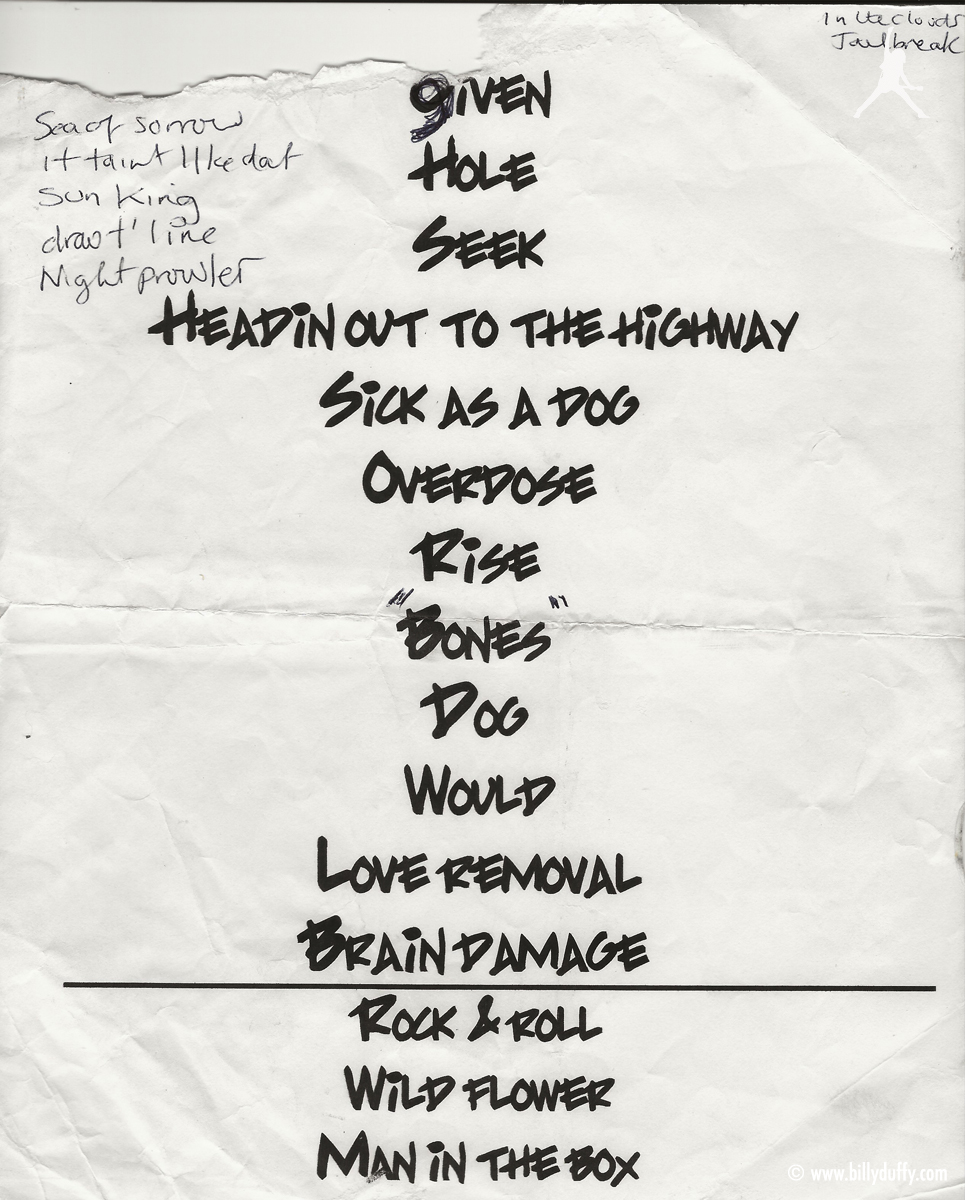 In the clouds
Jailbreak
Sea of sorrow
it taint like dat
Sun King
draw t' line
Nightprowler
gIVEN
HOLE
SEEK
HEADIN OUT TO THE HIGHWAY
SICK AS A DOG
OVERDOSE
RISE
"BONES"
DOG
WOULD
LOVE REMOVAL
BRAIN DAMAGE
ROCK & ROLL
WILD FLOWER
MAN IN THE BOX
© www.billyduffy.com